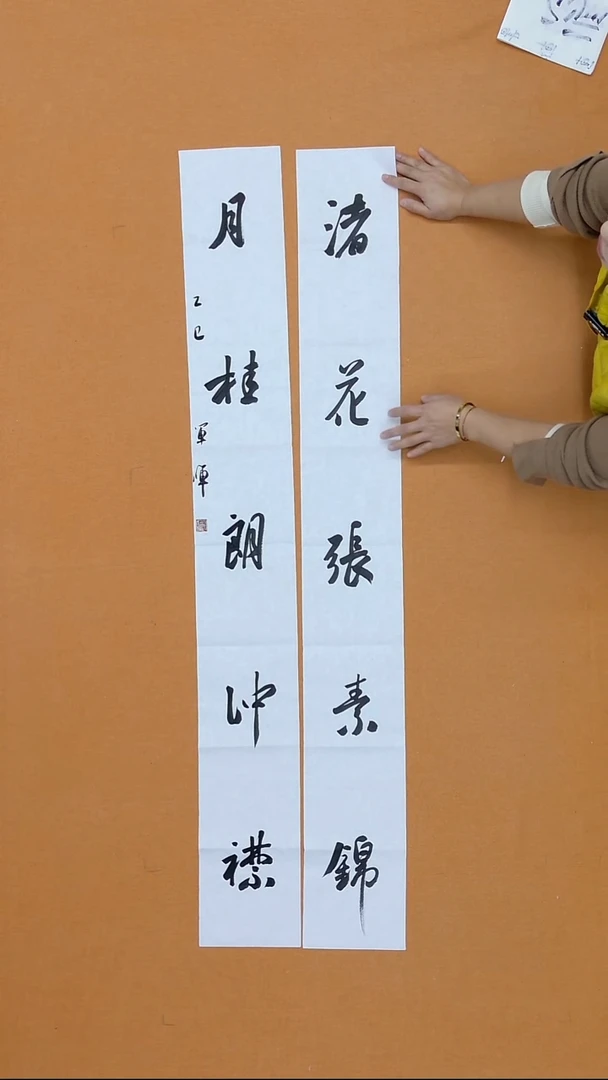 渚花張素錦
月桂朗冲襟
乙巳 軍暉